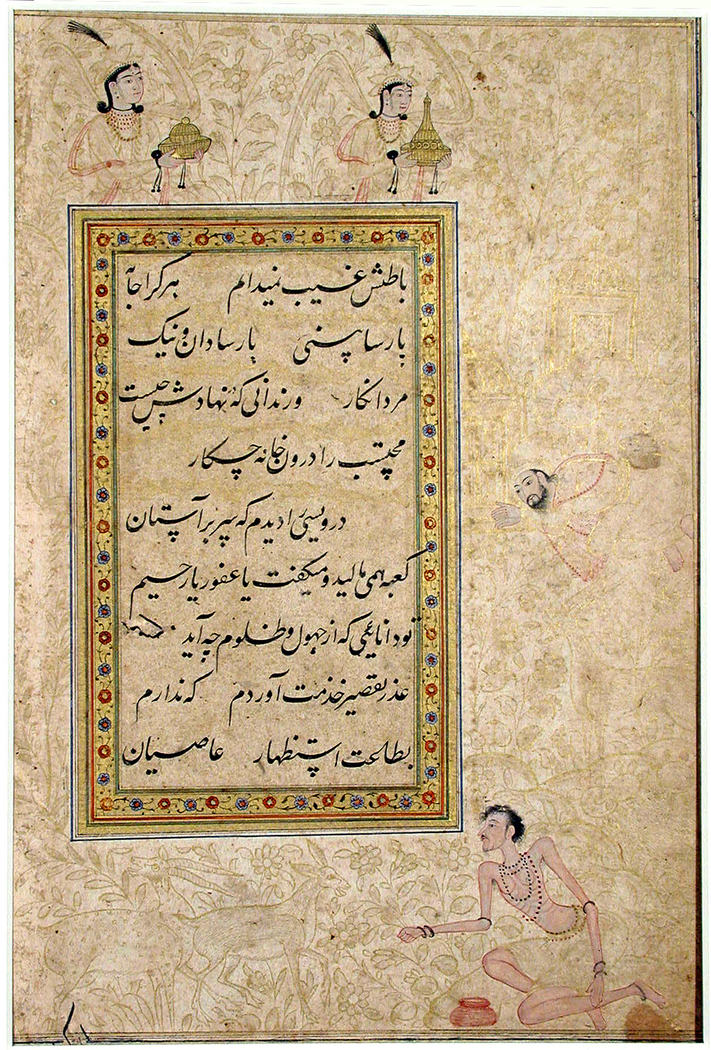 باطنش غیب نمیدانم هر کرا جامه
پارسا بینی پارسا دان و نیک
مرد انگار ور ندانی که نهادش چیست
محتسب را درون خانه چکار
درویشی را دیدم که سر بر آستان
کعبه همی مالید و میگفت یا غفور یا رحیم
تو دانایی که از جهول و ظلوم چه آید
عذر تقصیر خدمت آوردم که ندارم
بطاعت استظهار عاصیان